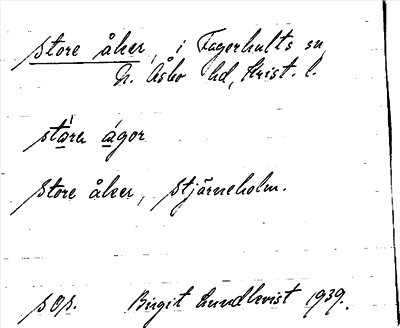 Store åker, i Fagerhults sn,
N. Åsbo hd, Krist. l.
stara ágor
Store åker, Stjärneholm.
sOp. Birgit Lundkvist 1939.